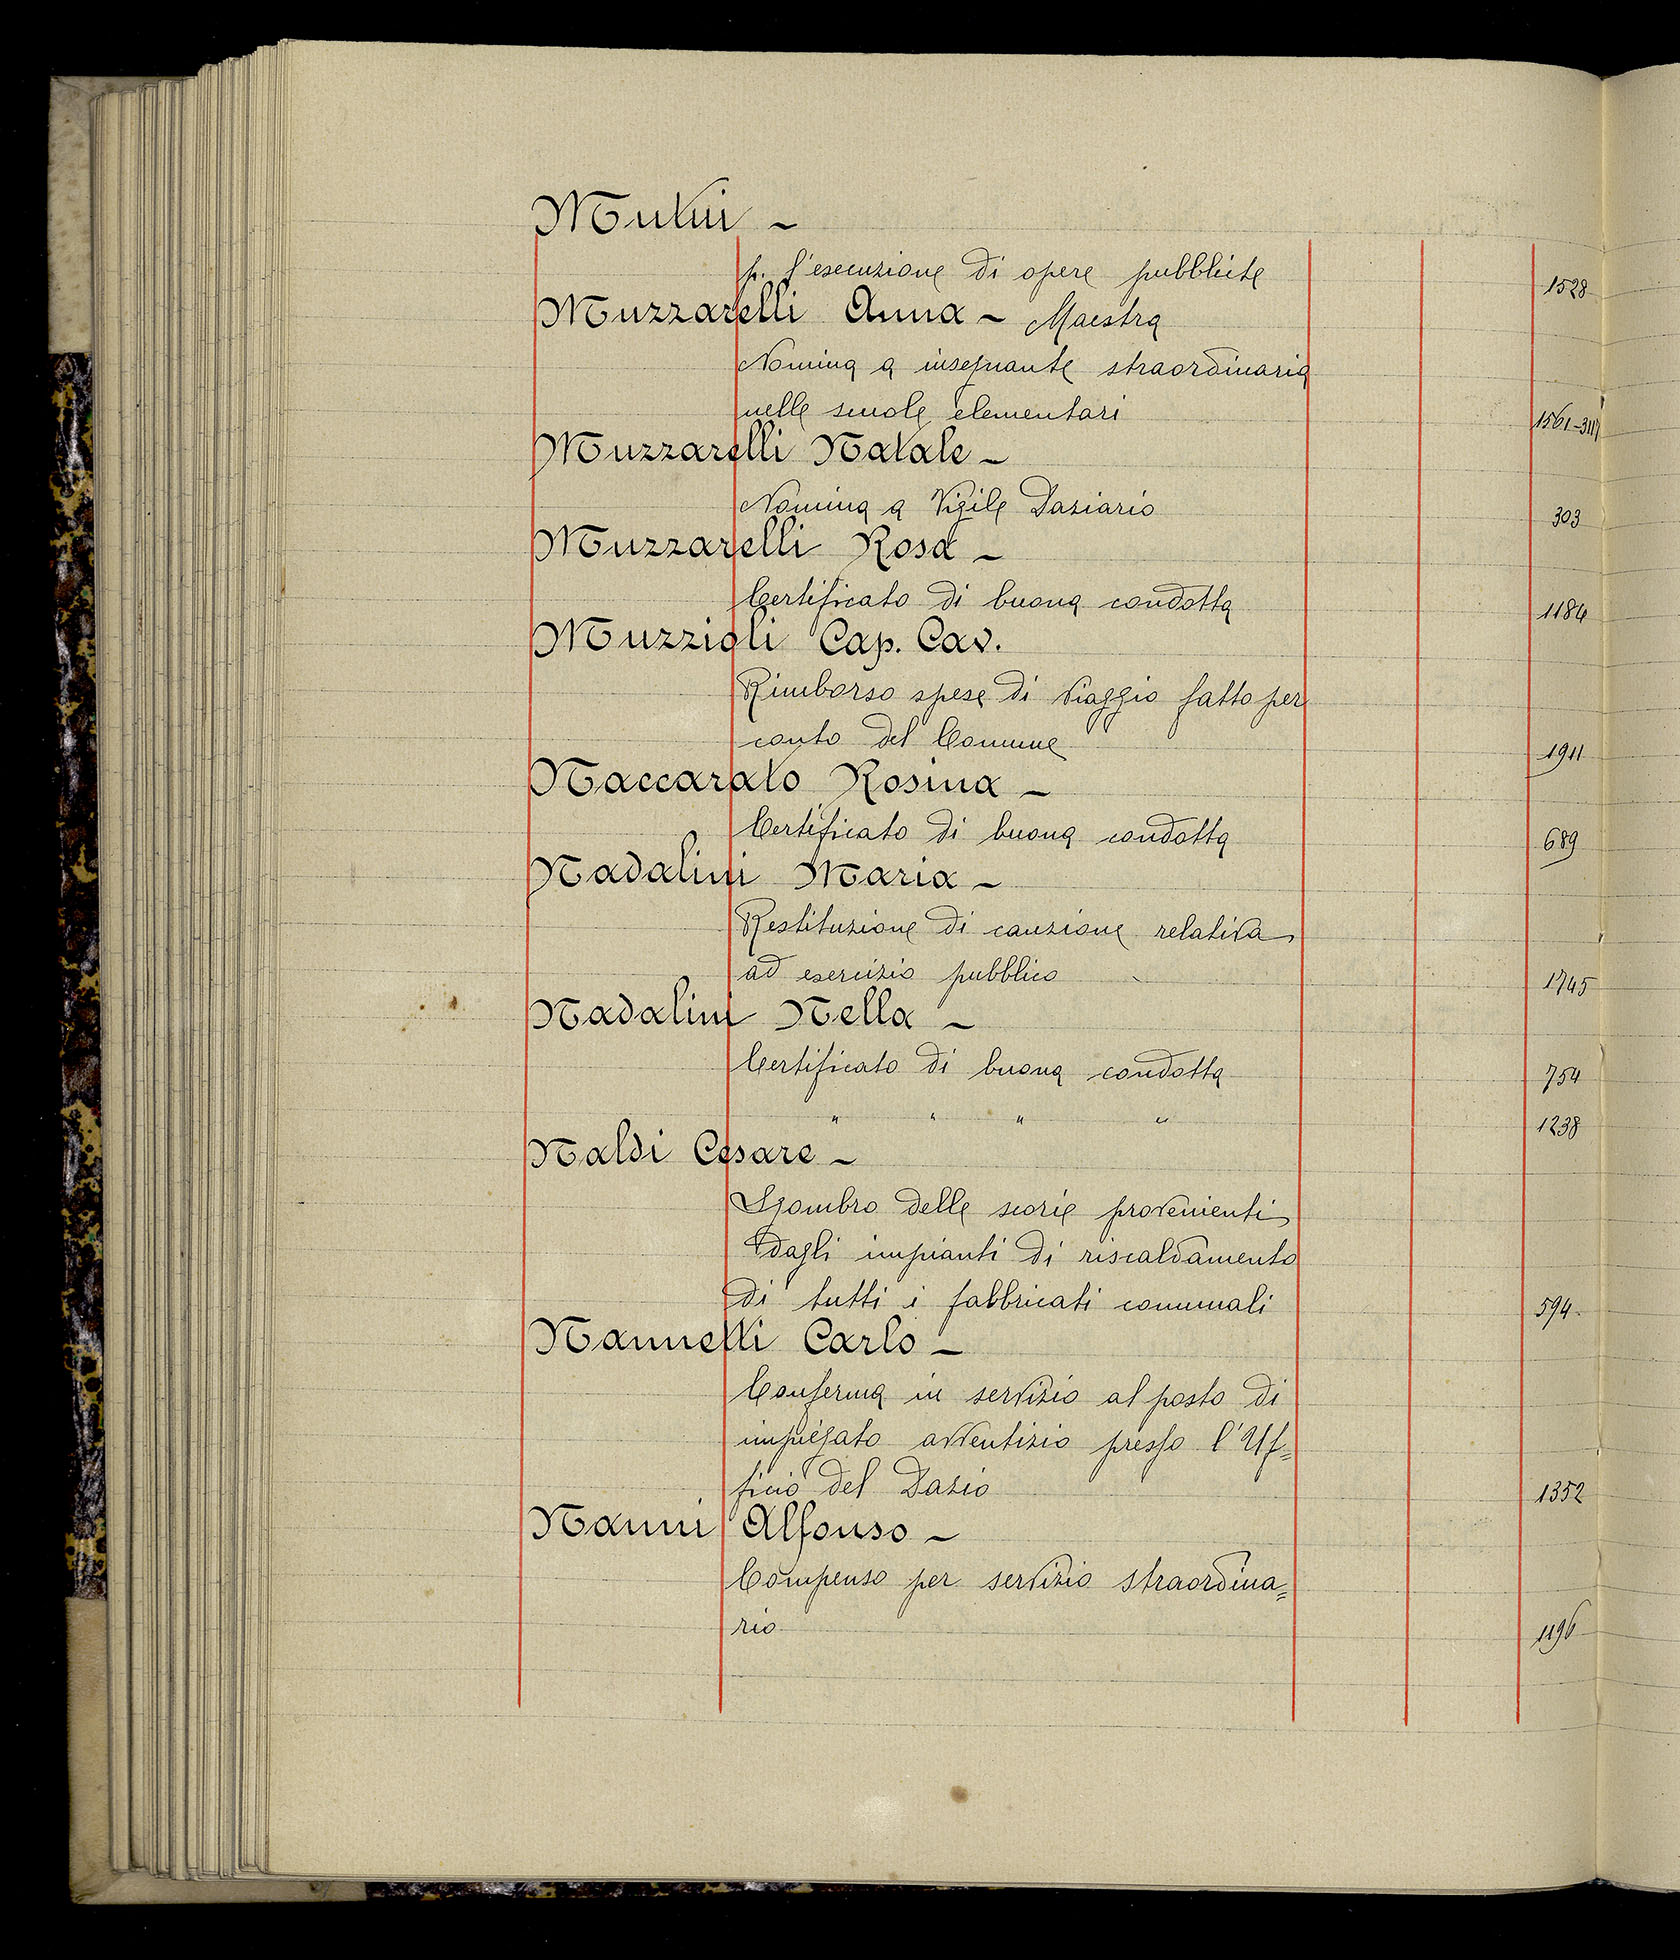 Mutui -
p. l'esecuzione di opere pubbliche 1528
Muzzarelli Anna - Maestra
Nomina a insegnante straordinaria
nelle scuole elementari 1561-3117
Muzzarelli Natale -
Nomina a Vigile Daziario 303
Muzzarelli Rosa -
Certificato di buona condotta 1184
Muzzioli Cap. Cav.
Rimborso spese di viaggio fatto per
conto del Comune 1911
Naccarato Rosina -
Certificato di buona condotta 689
Nadalini Maria -
Restituzione di cauzione relativa
ad esercizio pubblico 1745
Nadalini Nella -
Certificato di buona condotta 754
" " " " 1238
Naldi Cesare -
Sgombro delle scorie provenienti
dagli impianti di riscaldamento
di tutti i fabbricati comunali 594.
Nannetti Carlo -
Conferma in servizio al posto di
impiegato avventizio presso l'Uf=
ficio del Dazio 1352
Nanni Alfonso -
Compenso per servizio straordina=
rio 1196